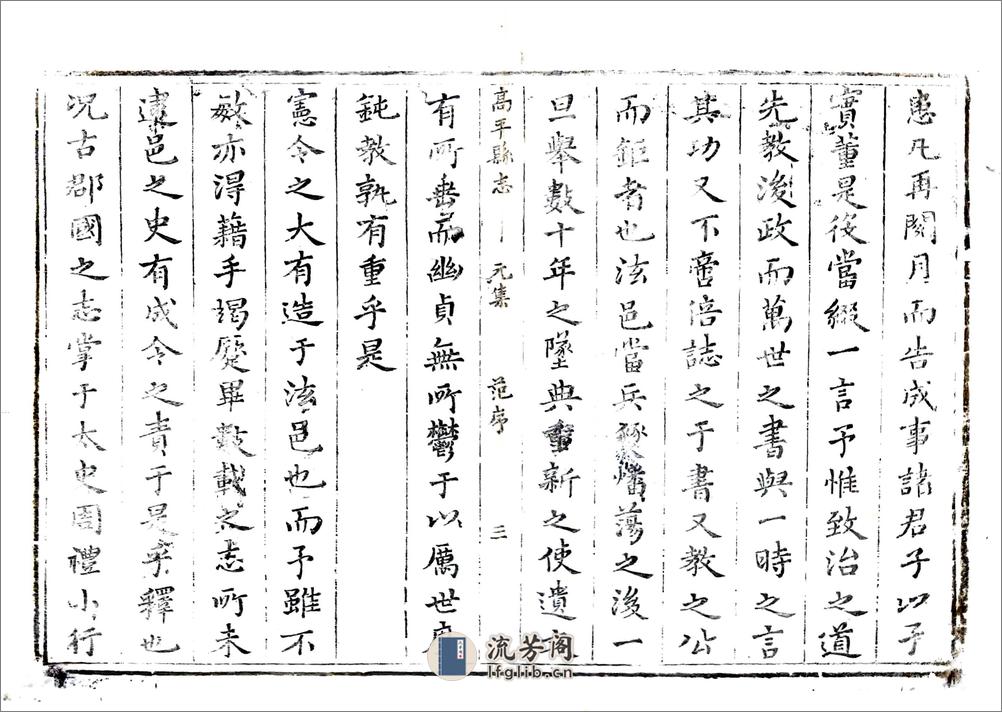 愚凡再閱月而告成事諸君子以予
實董是役當綴一言予惟致治之道
先教後政而萬世之書與一時之言
其功又不啻倍誌之于書又教之公
而鉅者也法邑當兵燹燔蕩之後一
旦舉數十年之墜典重新之使遺
高平縣志 元集 范序 三
有所垂而幽貞無所鬱于以厲世
鈍教孰有重乎是
憲令之大有造于法邑也而予雖不
敏亦得藉手竭蹷畢數載之志所未
逮邑之史有成令之責于是乎釋也
况古郡國之志掌于太史周禮小行
流芳阁
lfglib.cn